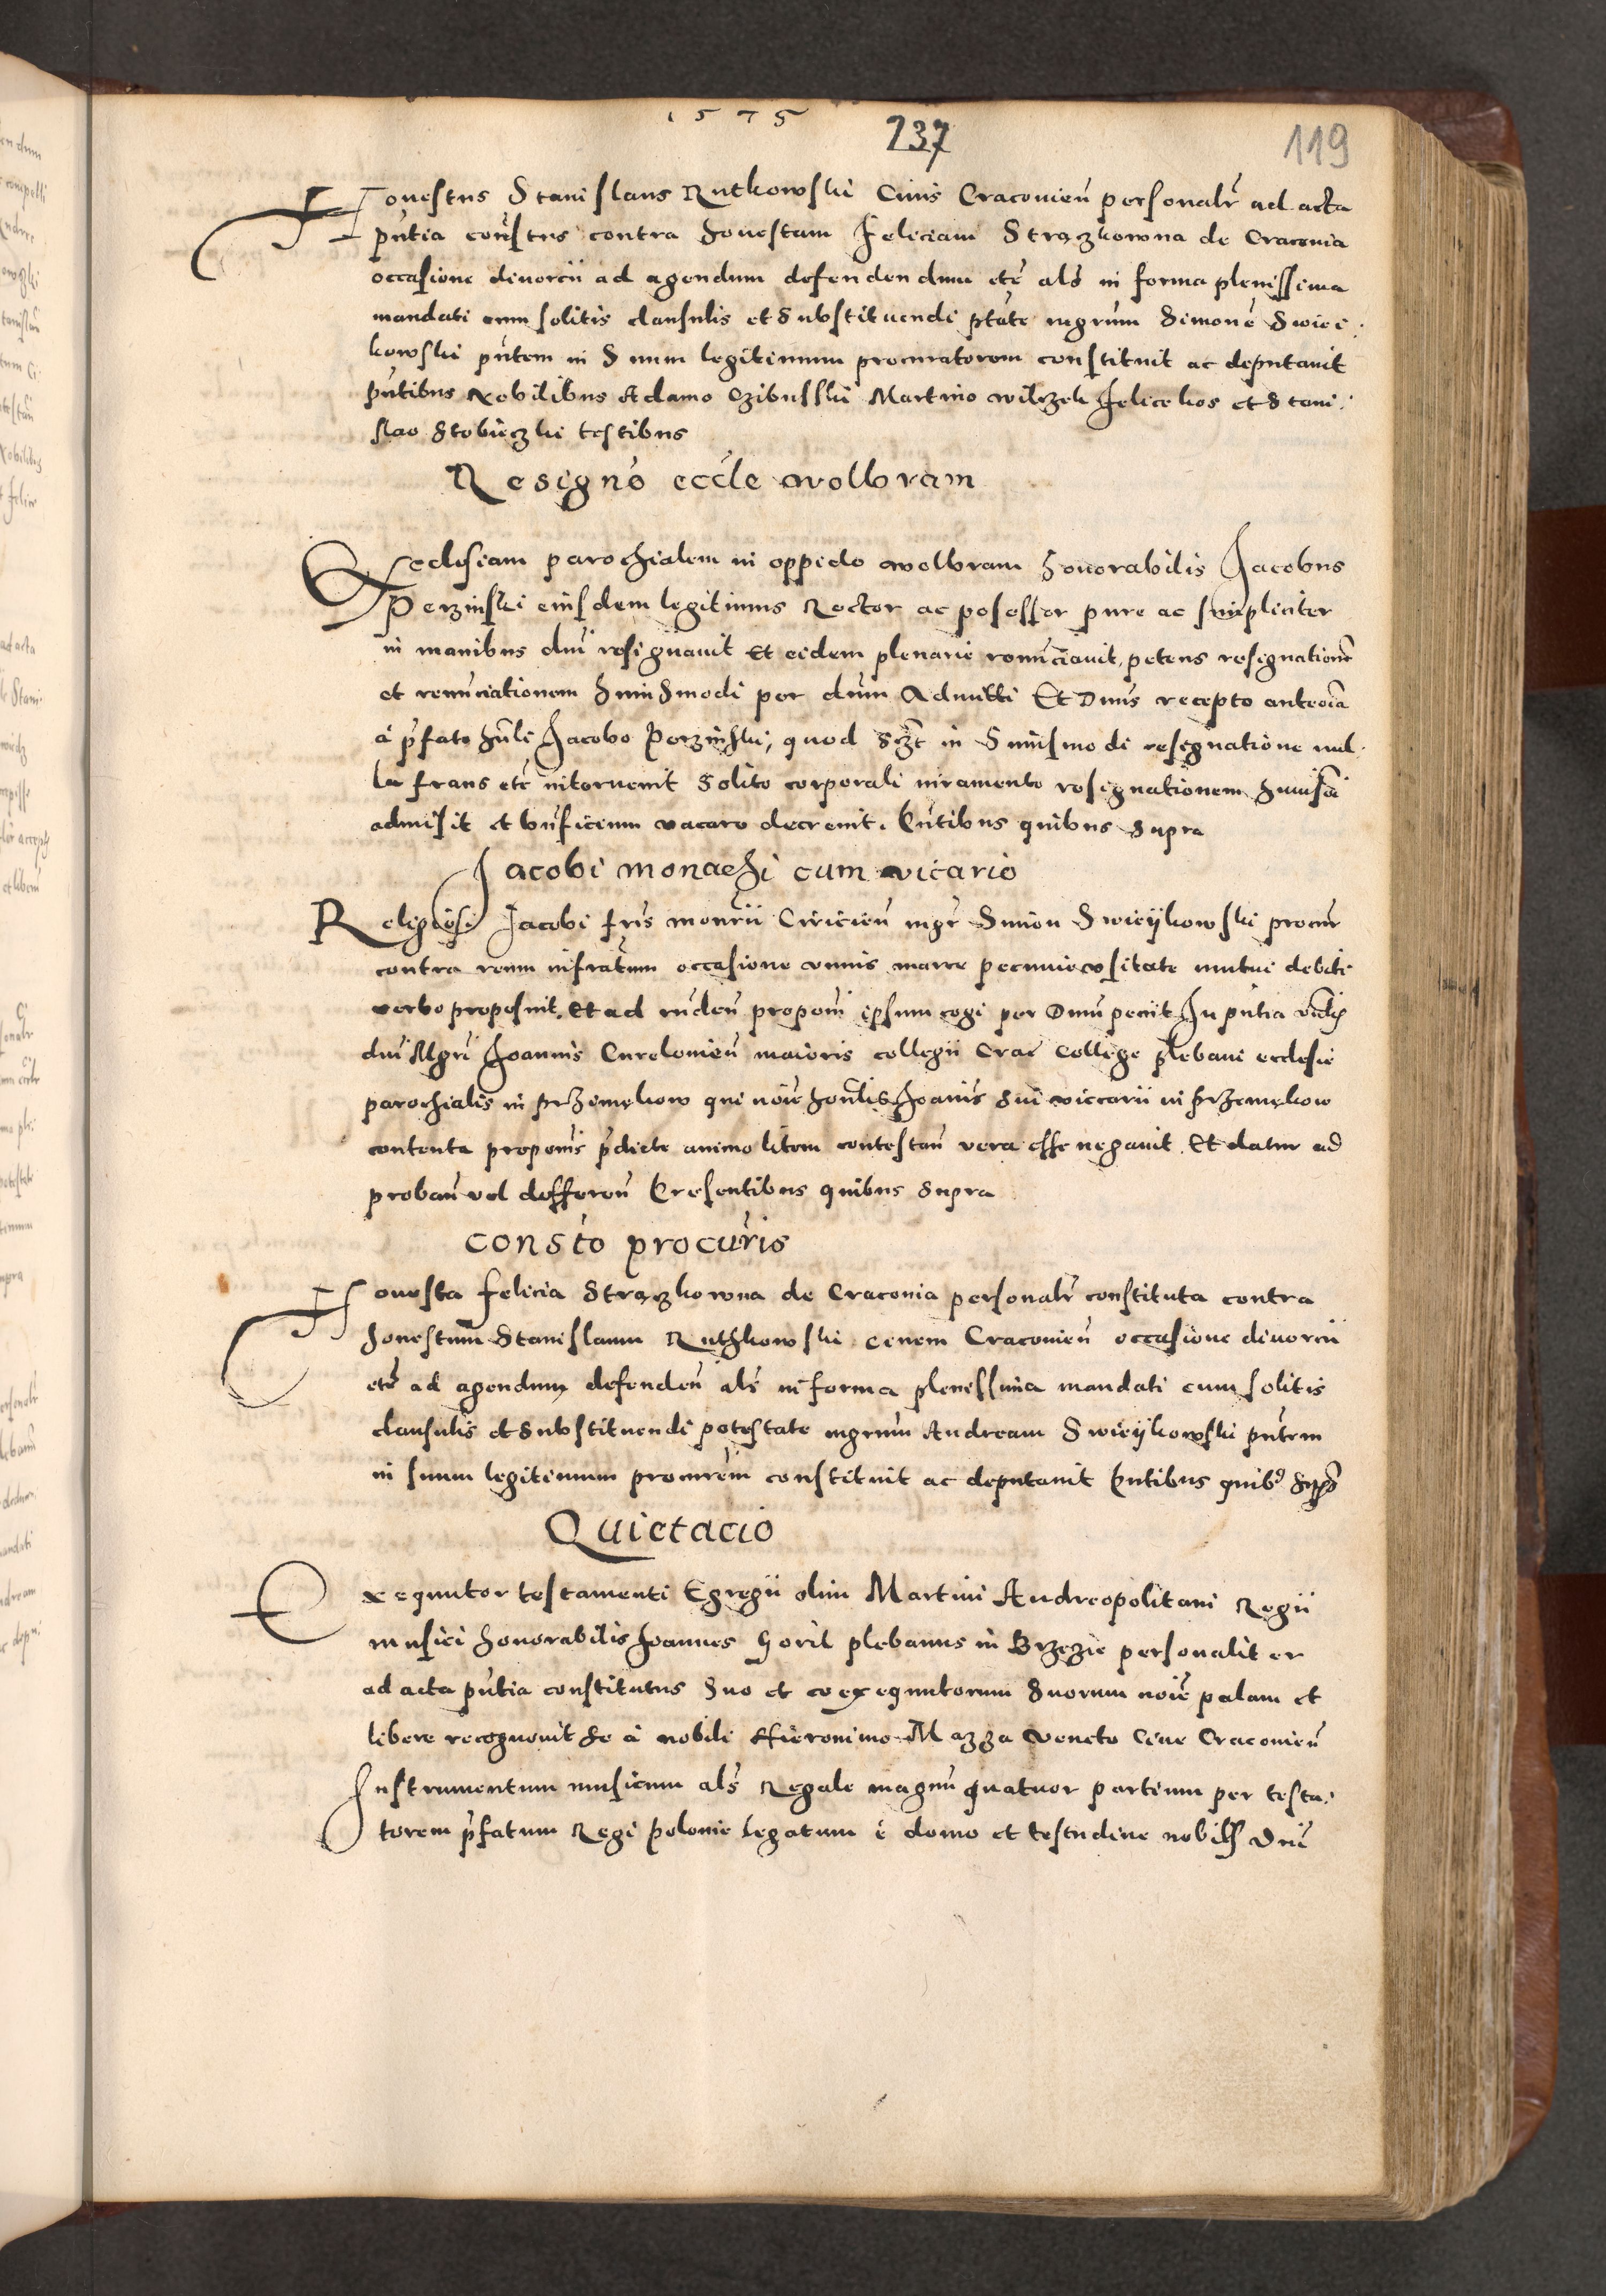 1575
237
119
Honestus Stanislaus Rutkowski Civis Cracovieñ personalr ad acta
pñtia coñstus contra honestam Feliciam Strączkowna de Cracovia
occasione divorcii ad agendum defendendum etc als in forma plenissima
mandati cum solitis clausulis et substituendi ptate mgrum Simone Swiei
kowski pñtem in Suum legitimum procuratorem constituit ac deputavit
pñtibus Nobilibus Adamo Czibulski Martino wilczek Felice kos et Stani
slao Stobieczki testibus
Resigno eccle wolbram
Ecclesiam parochialem in oppido wolbram honorabilis Jacobus
Perzinski eiusdem legitimus Rector ac posessor pure ac simpliciter
in manibus dni resignavit Et eidem plenarie renunciavit, petens resignatione
et renunciationem huiusmodi per dnm Admitti Et Dnus recepto
a pfato hnli Jacobo Perzinski, quod in huiusmodi resignatione nul
la fraus etc intervenit Solito corporali iuramento resignationem
admisit et bñficium vacare decrevit. Pñtibus quibus supra
Jacobi monachi cum vicario
Religiosi Jacobi fris monrii Ciricieñ mgr Simon Swieykowski procur
contra reum infratum occasione unius marce pecunie ositate mutui debiti
verbo proposuit. Et ad rndeñ propoñi ipsum cogi per Dnm peciit In pñtia
dni Mgri Joannis Cureloνieñ maioris collegii Crac College plebani ecclesie
parochialis in przemękow qui noie honlis Joanis sui viccarii in przemękow
contenta propoñis pdicte animo litem contestañ vera esse negavit. Et datur ad
probañ vel defferen Presentibus quibus supra
Consto procuris
Honesta Felicia Strączkowna de Cracovia personalr constituta contra
honestum Stanislaum Ruthkowski civem Cracovieñ occasione divorcii
etc ad agendum defendeñ als in forma plenissima mandati cum solitis
clausulis et substituendi potestate mgrum Andream Swieykowski pñtem
in suum legitimum procurem constituit ac deputavit Pñtibus quib9 supra
Quietacio
Exequutor testamenti Egregii olim Martini Andreopolitani Regii
musici honorabilis Joannes Goril plebanus in Brzezie personaliter
ad acta pñtia constitutus suo et coexequutorum suorum noie palam et
libere recognovit se a nobili Hieronimo Mazza Veneto Cive Cracovieñ
Instrumentum musicum als Regale magnũ quatuor partium per testa
torem pfatum Regi polonie legatum e domo et testudine nobilis Dni